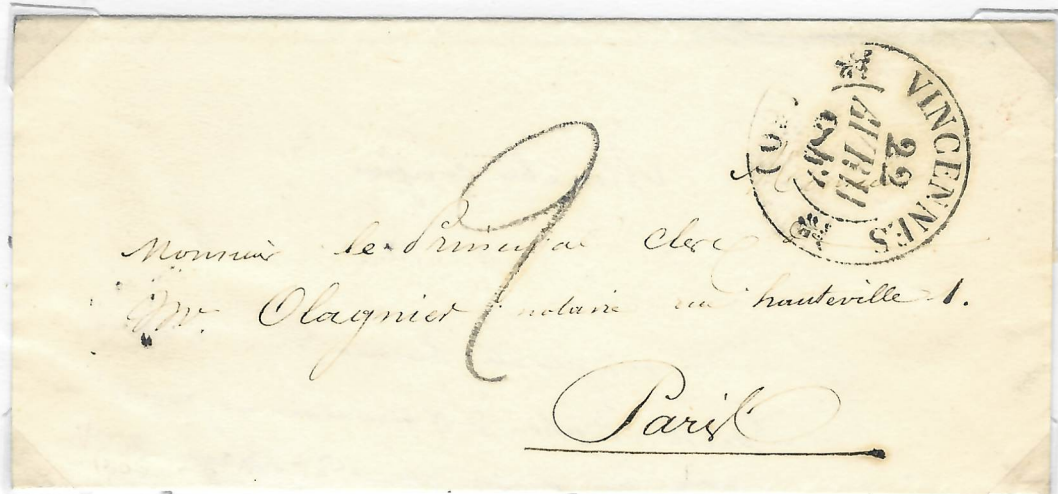 VINCENNES
22
AVRIL
(60)
2
Monsieur le Principal clerc
Mr. Olagnier notaire rue hauteville 1.
Paris